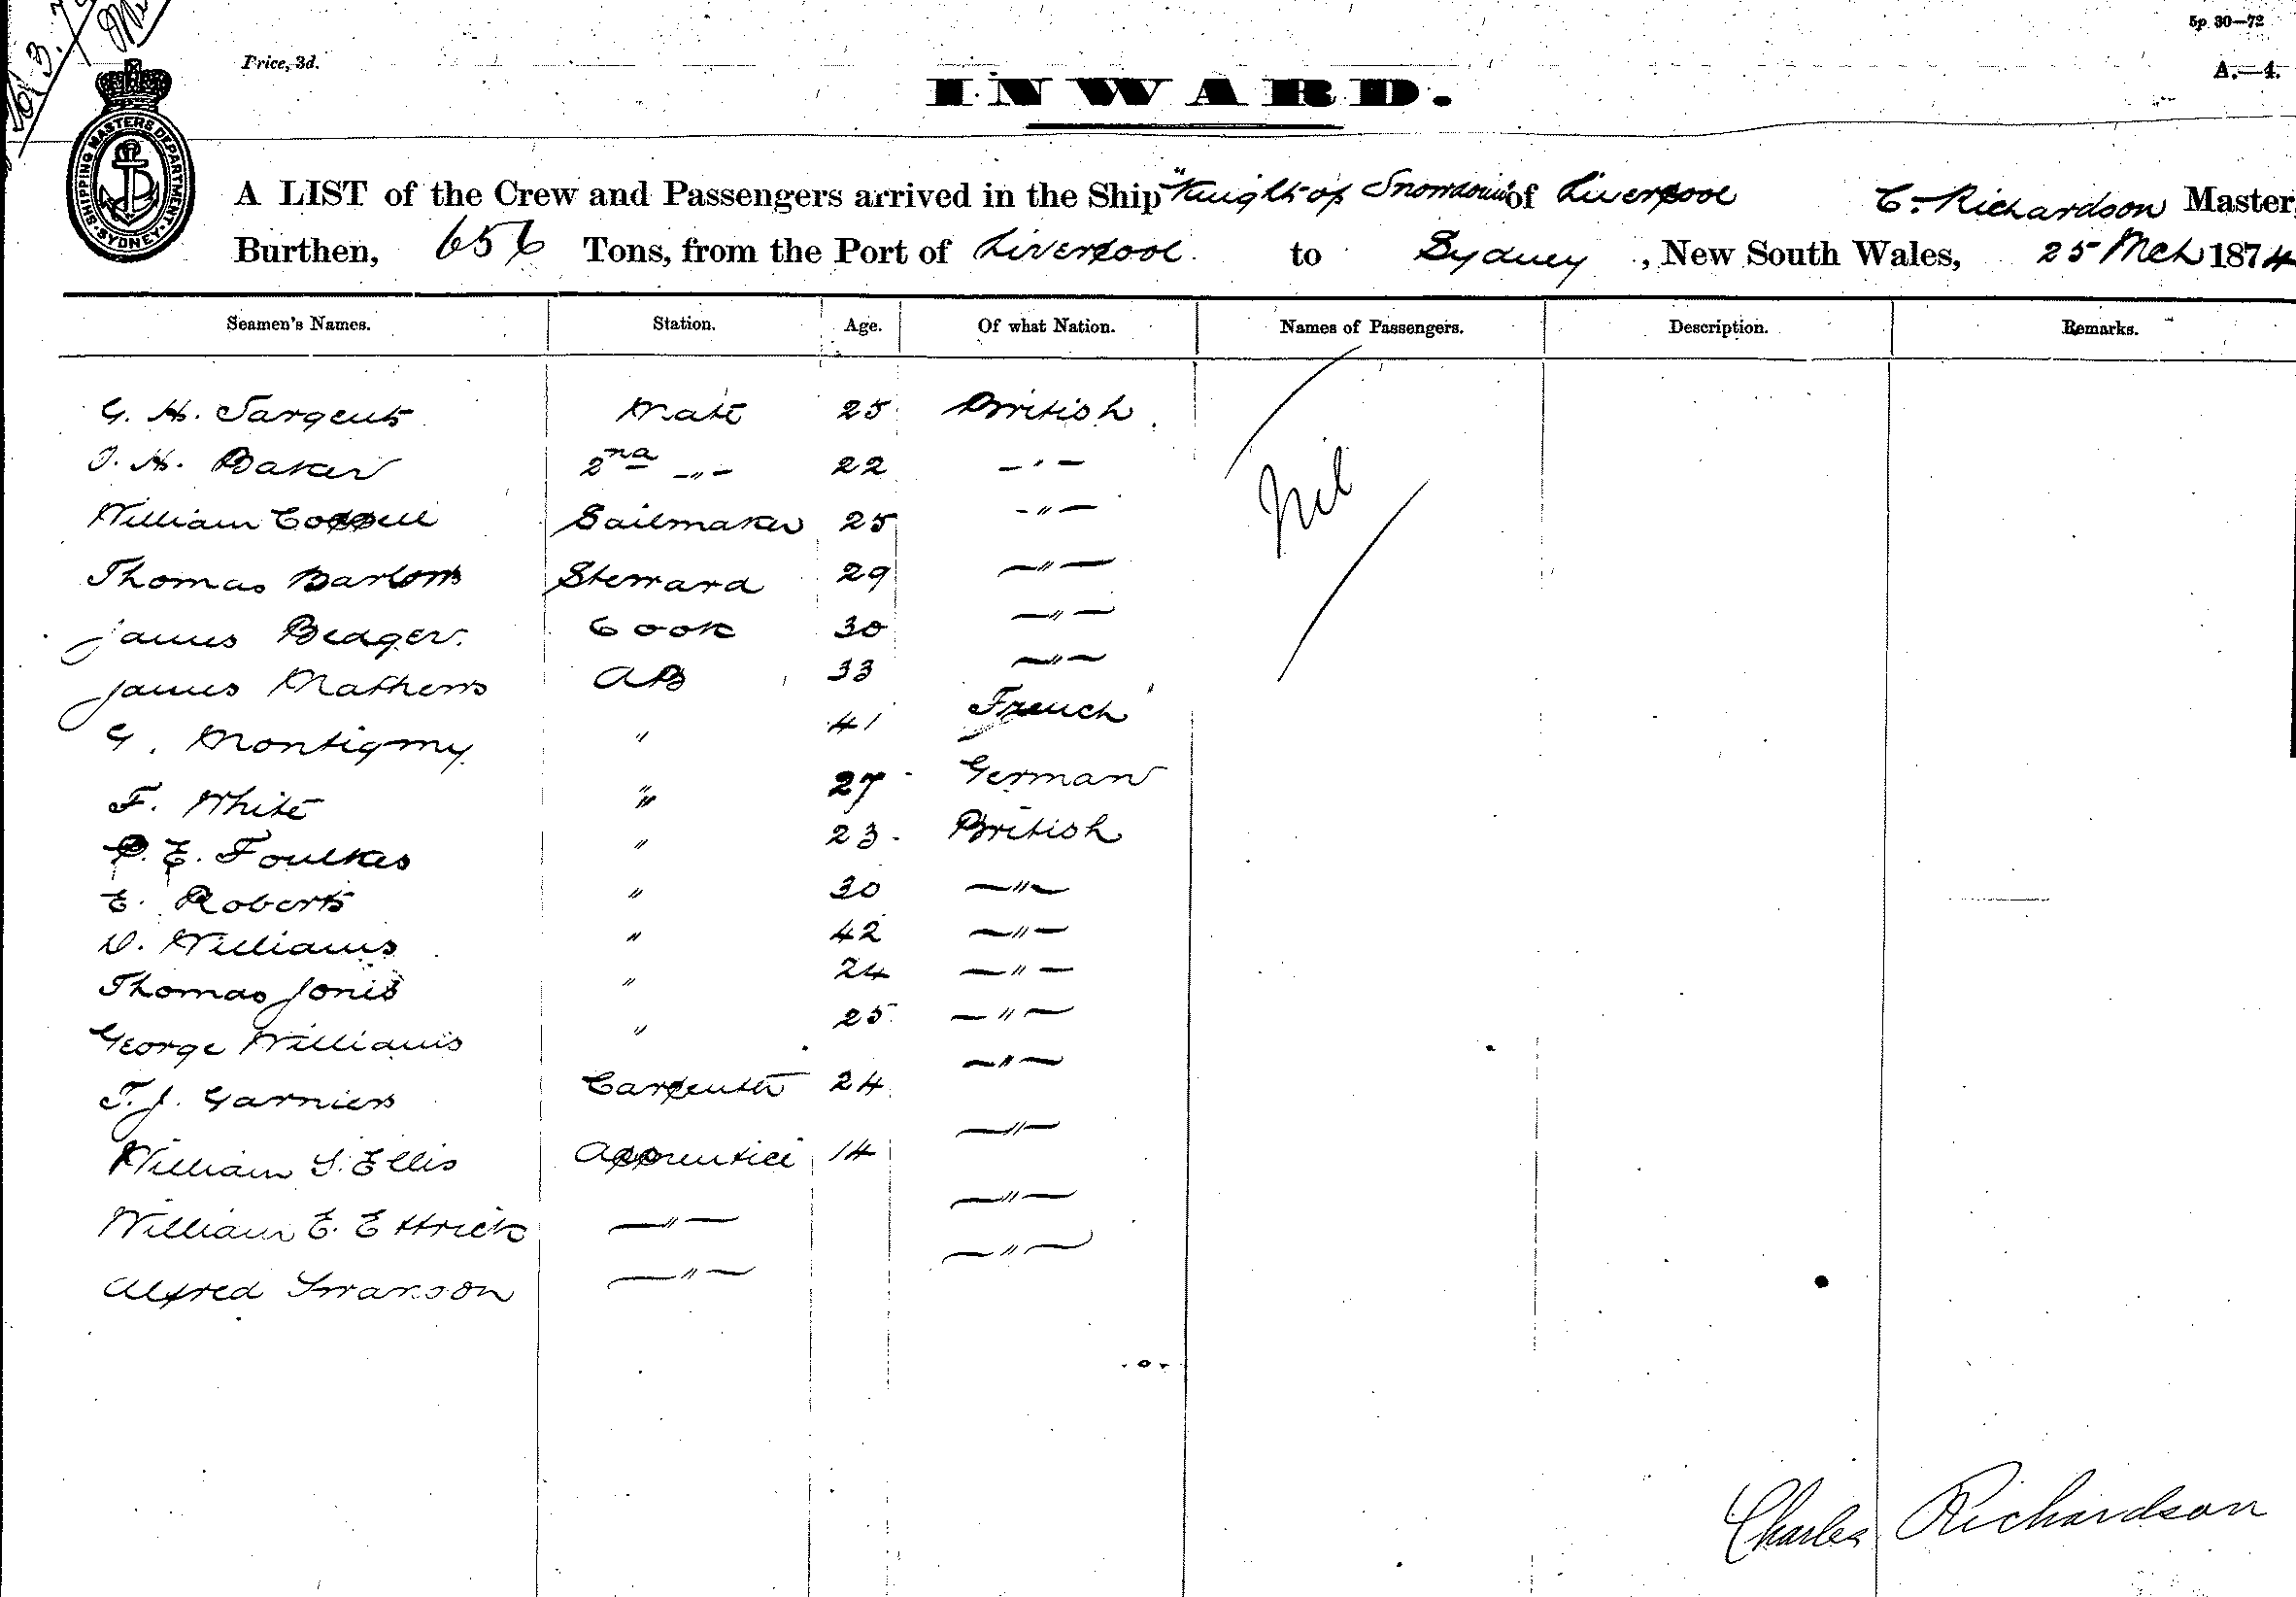 5p 30—72
Price, 3d.
A.—4.
INWARD.
SHIPPING MASTERS DEPARTMENT SYDNEY
A LIST of the Crew and Passengers arrived in the Ship "Knight of Snowdown" of Liverpool C. Richardson Master,
Burthen, 656 Tons, from the Port of Liverpool to Sydney, New South Wales, 25 Mch 1874
Seamen's Names. Station. Age. Of what Nation. Names of Passengers. Description. Remarks.
G. H. Sargent Mate 25 British
Nil
J. H. Baker 2nd —"— 22 —"—
William Coppell Sailmaker 25 —"—
Thomas Barlow Steward 29 —"—
James Bedger Cook 30 —"—
James Mathews AB 33 —"—
G. Montigny " 41 French
F. White " 27 German
P. E. Foulkes " 23 British
E. Roberts " 30 —"—
D. Williams " 42 —"—
Thomas Jones " 24 —"—
George Williams " 25 —"—
T. J. Garniers Carpenter 24 —"—
William S. Ellis Apprentice 14 —"—
William E. Ettrick —"— —"—
Alfred Swanson —"— —"—
Charles Richardson